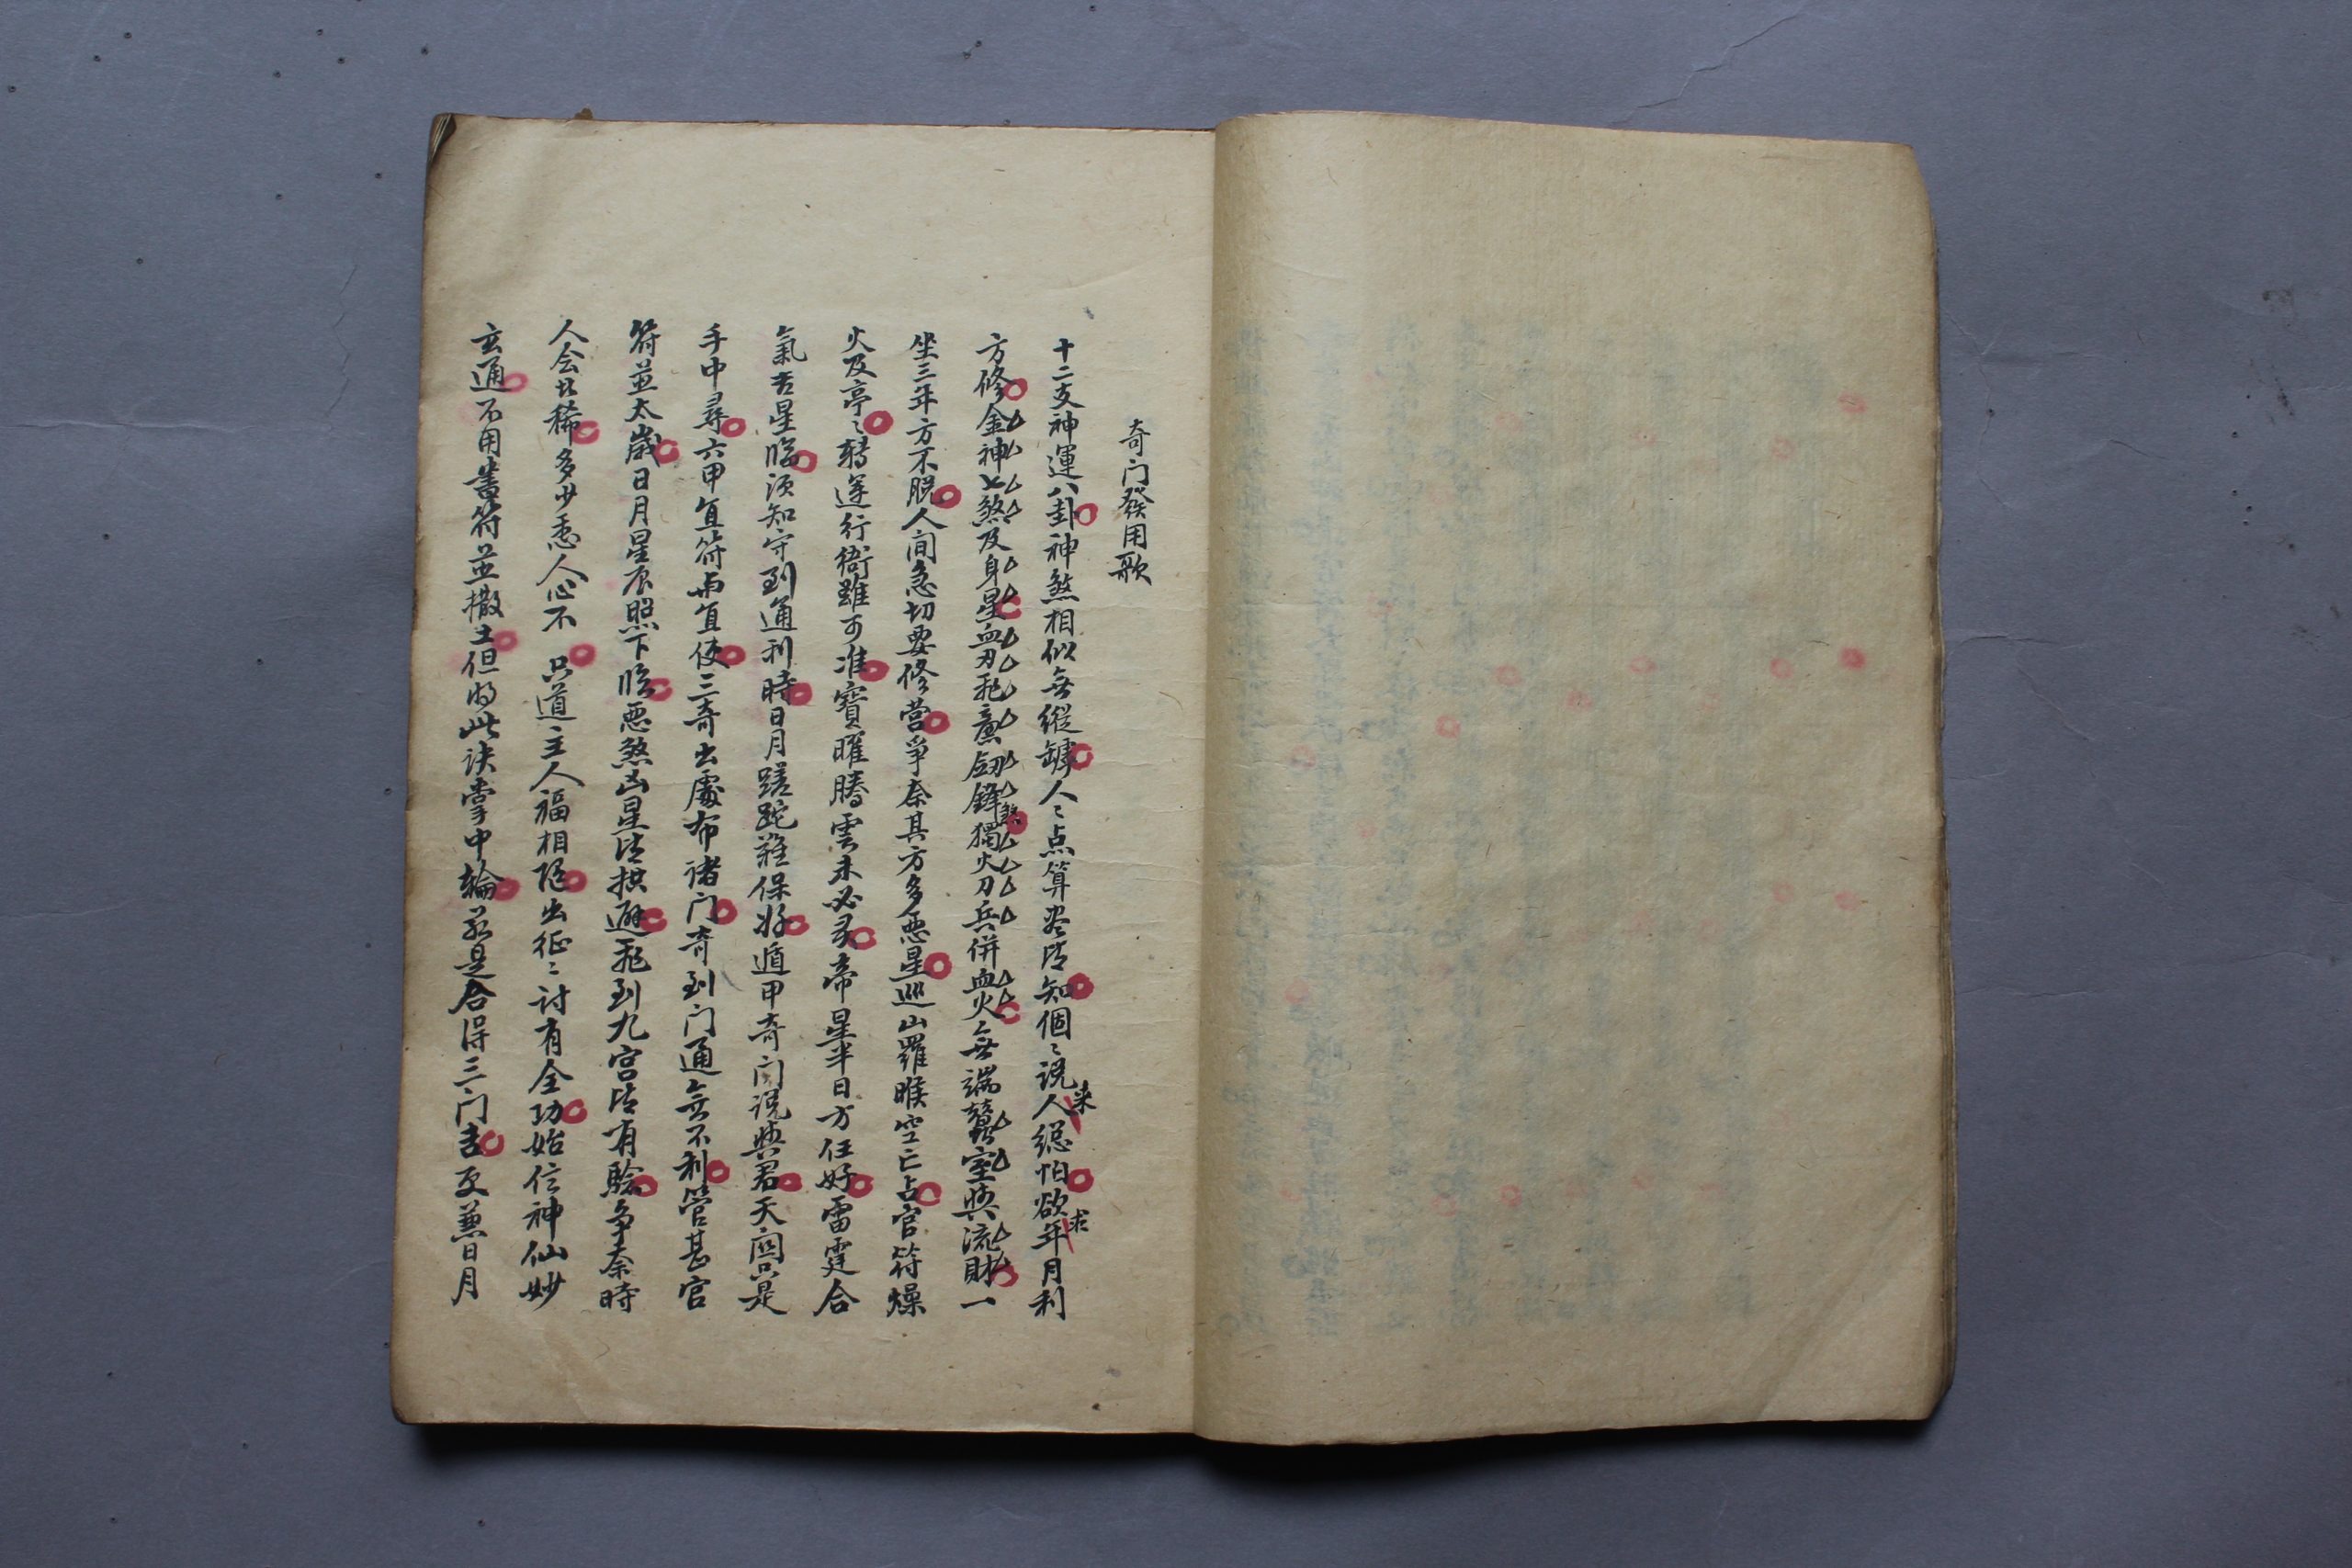 奇门發用歌
十二支神運八卦神煞相似無縱罅人〻点算盡皆知個〻说来人總怕欲求年月利
方修金神七煞及身星血刃飛廉劒鋒煞獨火刀兵併血火無端蠶室與流財一
坐三年方不脱人间急切要修营爭奈其方多恶星巡山羅睺空亡占官符燥
火及亭〻轉運行衙雖可准寶曜騰雲未必灵帝星半日方任好雷霆合
氣吉星臨须知守到通利時日月蹉跎難保好遁甲奇门说與君天關只是
手中尋六甲直符与直使三奇出處布诸门奇到门通無不利管甚官
符並太歲日月星辰照下臨恶煞凶星皆拱避飛到九宫皆有驗争奈時
人会者稀多少愚人心不 只道主人福相隨出征〻討有全功始信神仙妙
玄通不用書符並撒土但将此诀掌中輪若是合得三门吉更兼日月